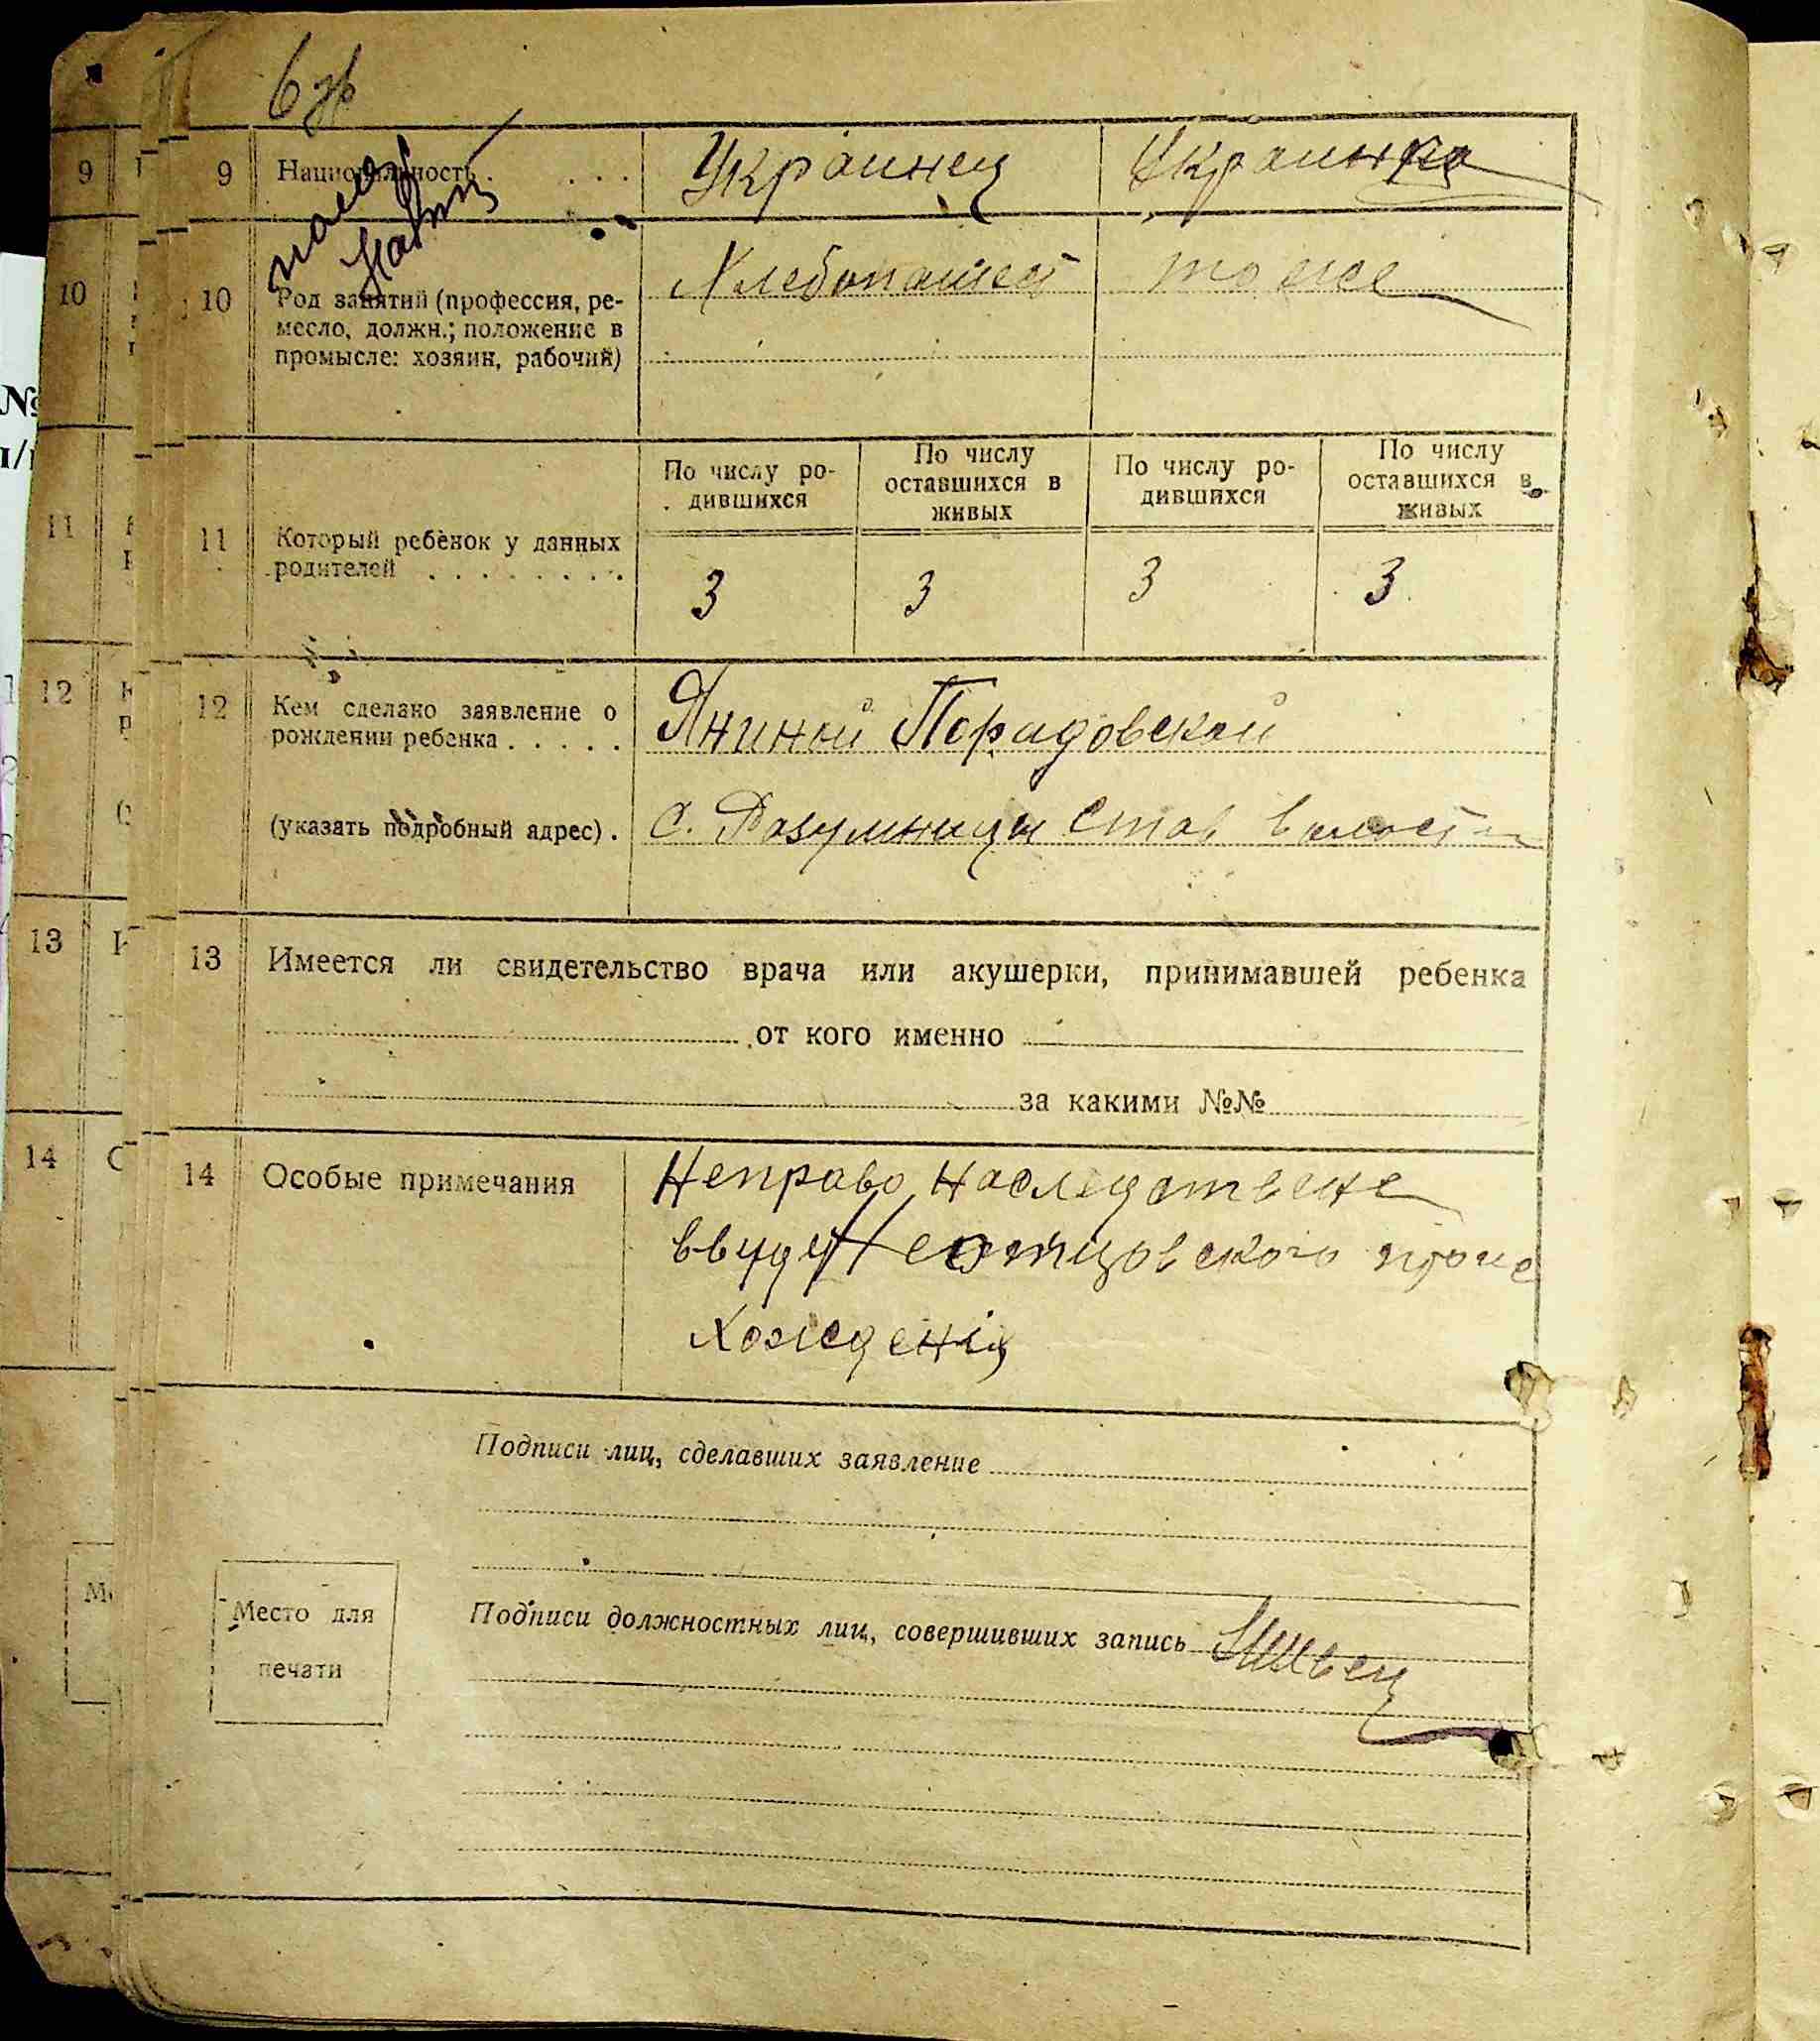 9 Национальность . . . . Украинец Украинка
10 Род занятий (профессия, ре-
месло, должн.; положение в
промысле: хозяин, рабочий)
Хлебопашест тоже
11 Который ребенок у данных
родителей . . . . . . . .
По числу ро-
дившихся
По числу
оставшихся в
живых
По числу ро-
дившихся
По числу
оставшихся в
живых
3 3 3 3
12 Кем сделано заявление о
рождении ребенка . . . . .
Яниной Порадовской
(указать подробный адрес) . С. Разумницы Став волости
13 Имеется ли свидетельство врача или акушерки, принимавшей ребенка
от кого именно
за какими №№
14 Особые примечания
Неправо наследствене
ввиду Неотцовского проис
хождения
Подписи лиц, сделавших заявление
Место для
печати
Подписи должностных лиц, совершивших запись Швец
9
10
11
12
13
14
№